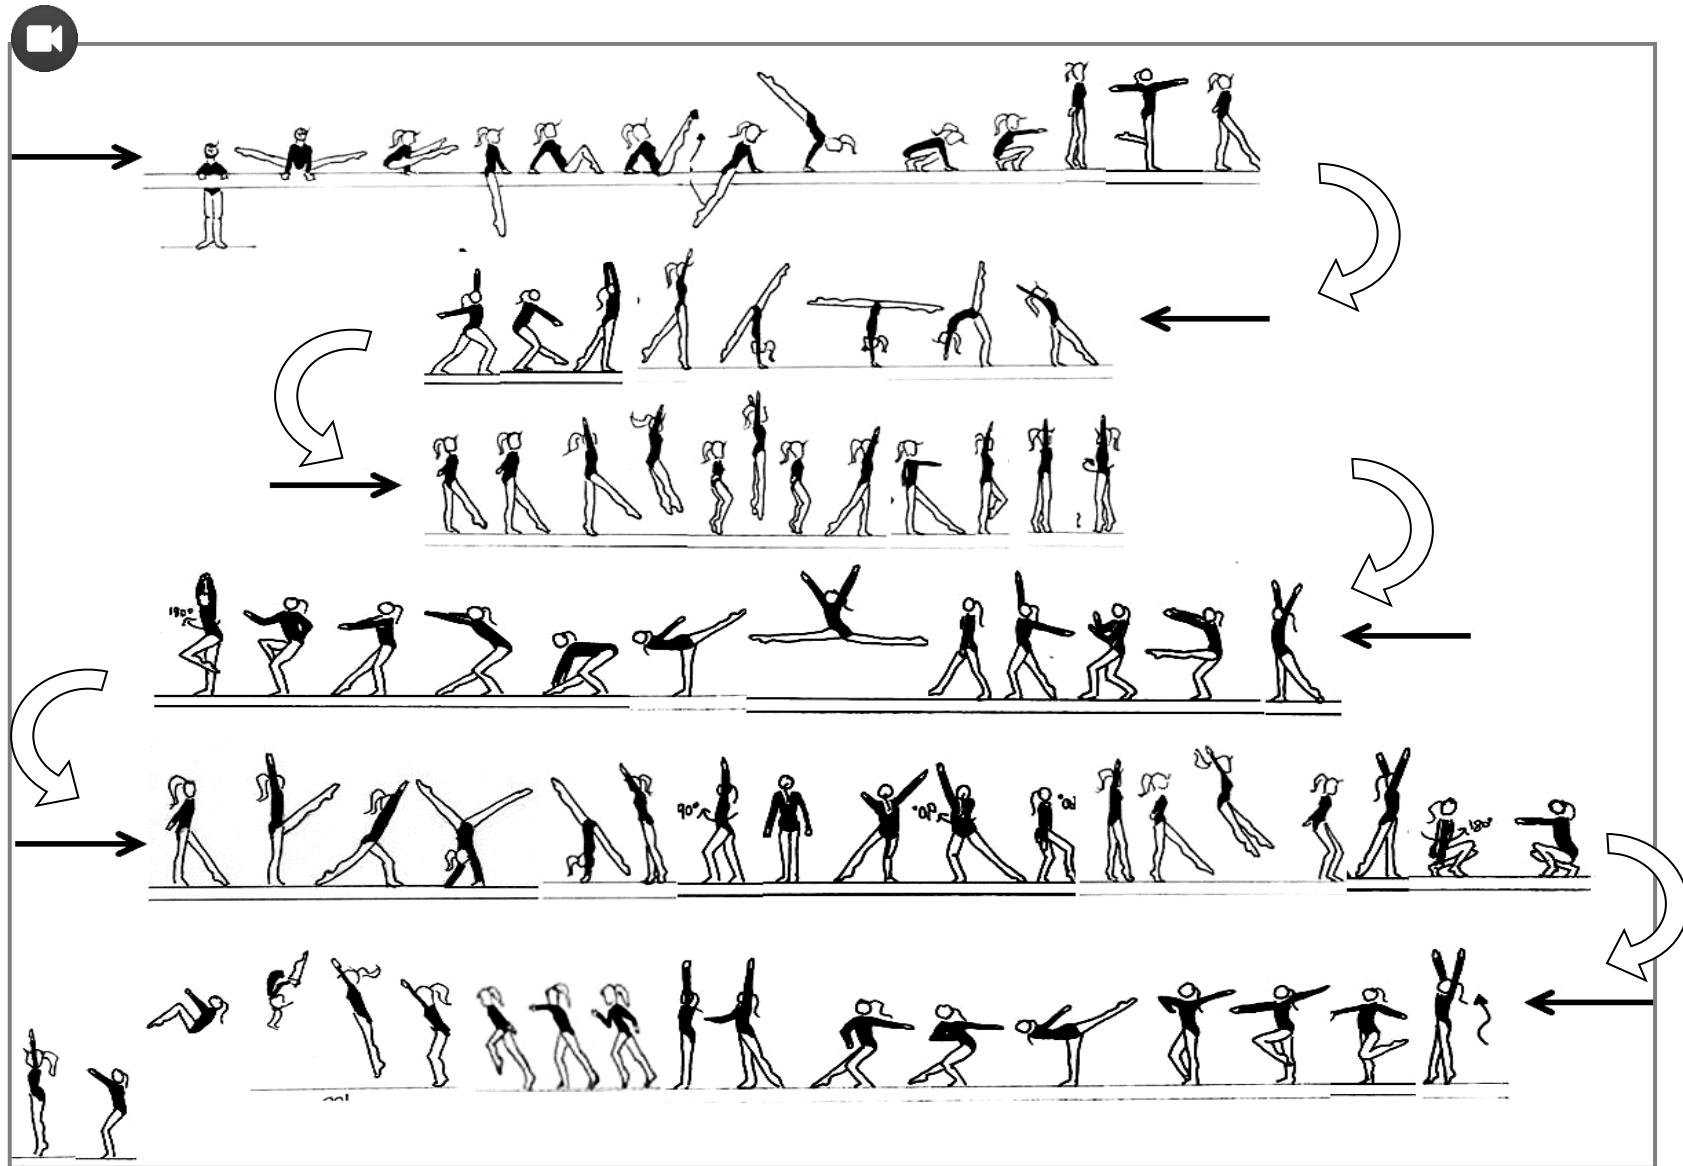 180°
90°
90°
90°
180°